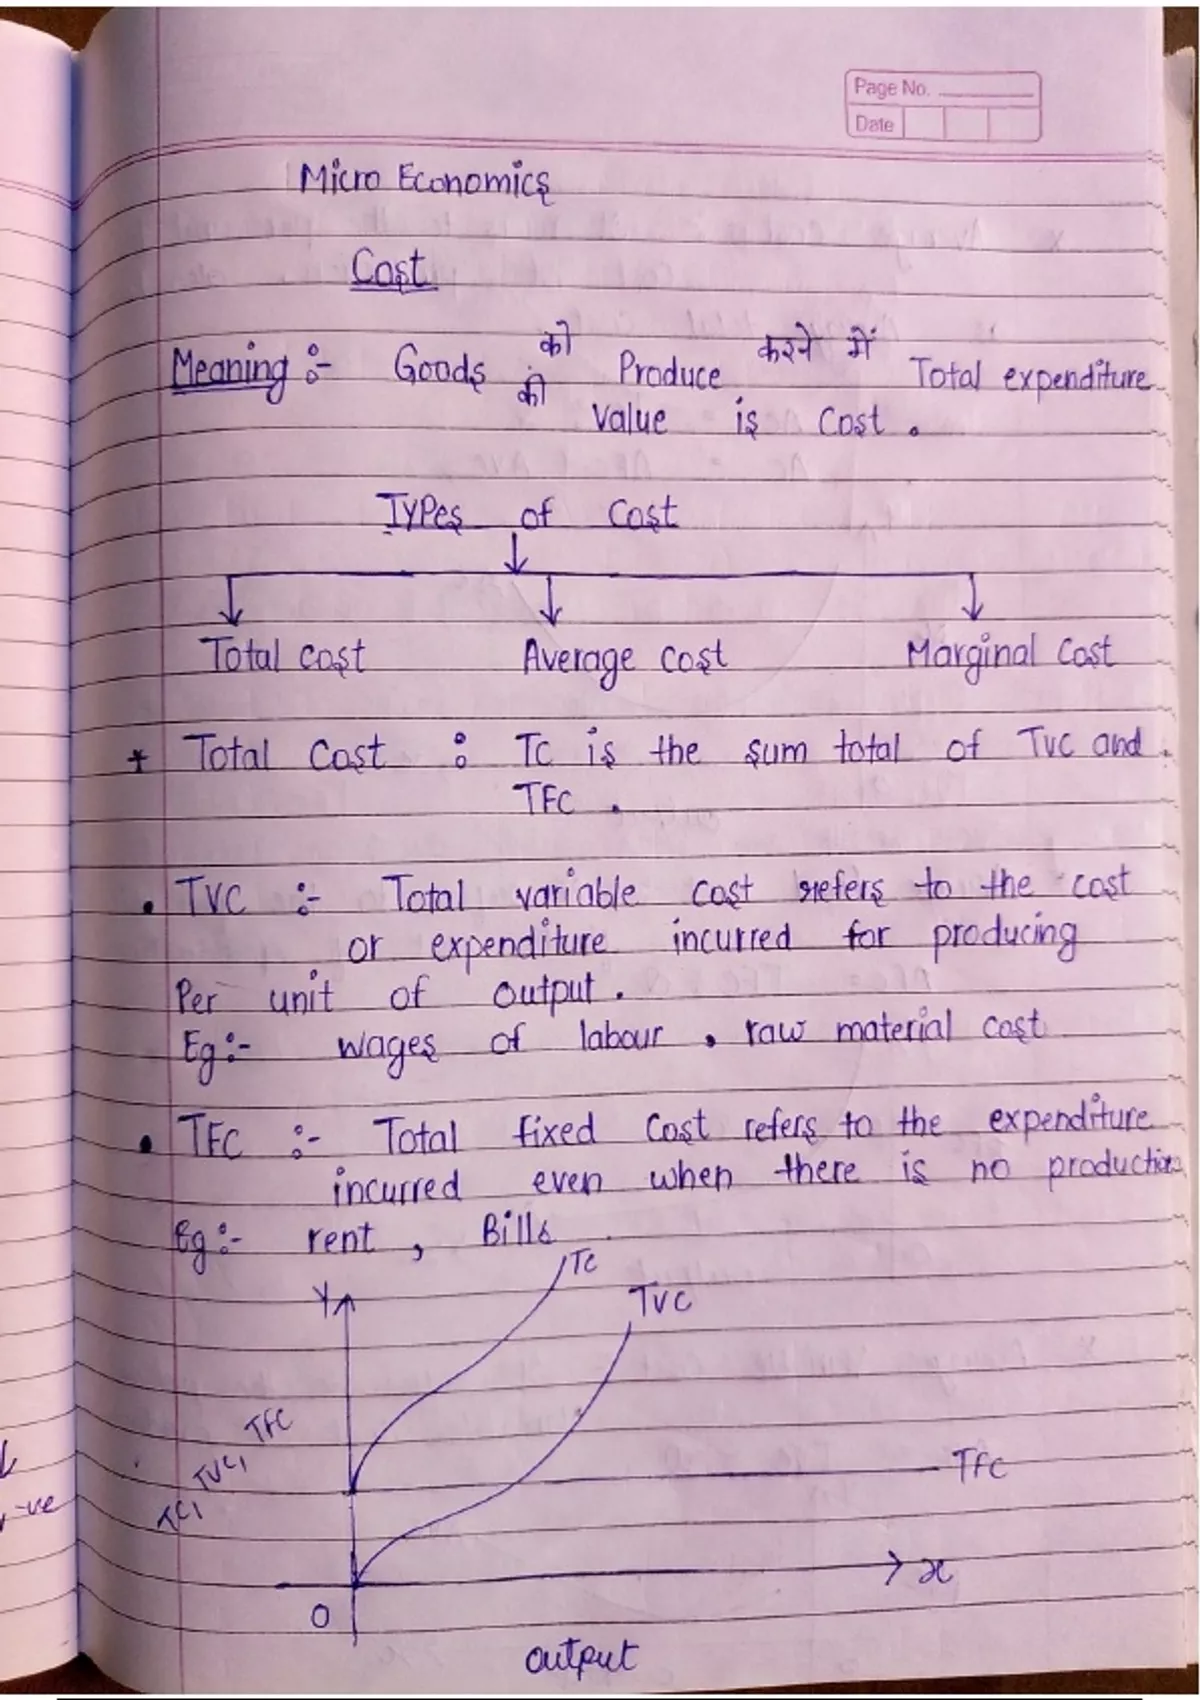 Page No.
Date
Micro Economics
Cost
Meaning :- Goods को Produce करने में Total expenditure
की Value is Cost .
Types of Cost
Total cost Average cost Marginal Cost
* Total Cost : TC is the sum total of TVC and
TFC .
• TVC :- Total variable cost refers to the cost
or expenditure incurred for producing
Per unit of output .
Eg :- wages of labour , raw material cost
• TFC :- Total fixed Cost refers to the expenditure
incurred even when there is no production
Eg :- rent , Bills
TC
Y TVC
TFC
TVC,
TC,
TFC
-ve
x
O
output